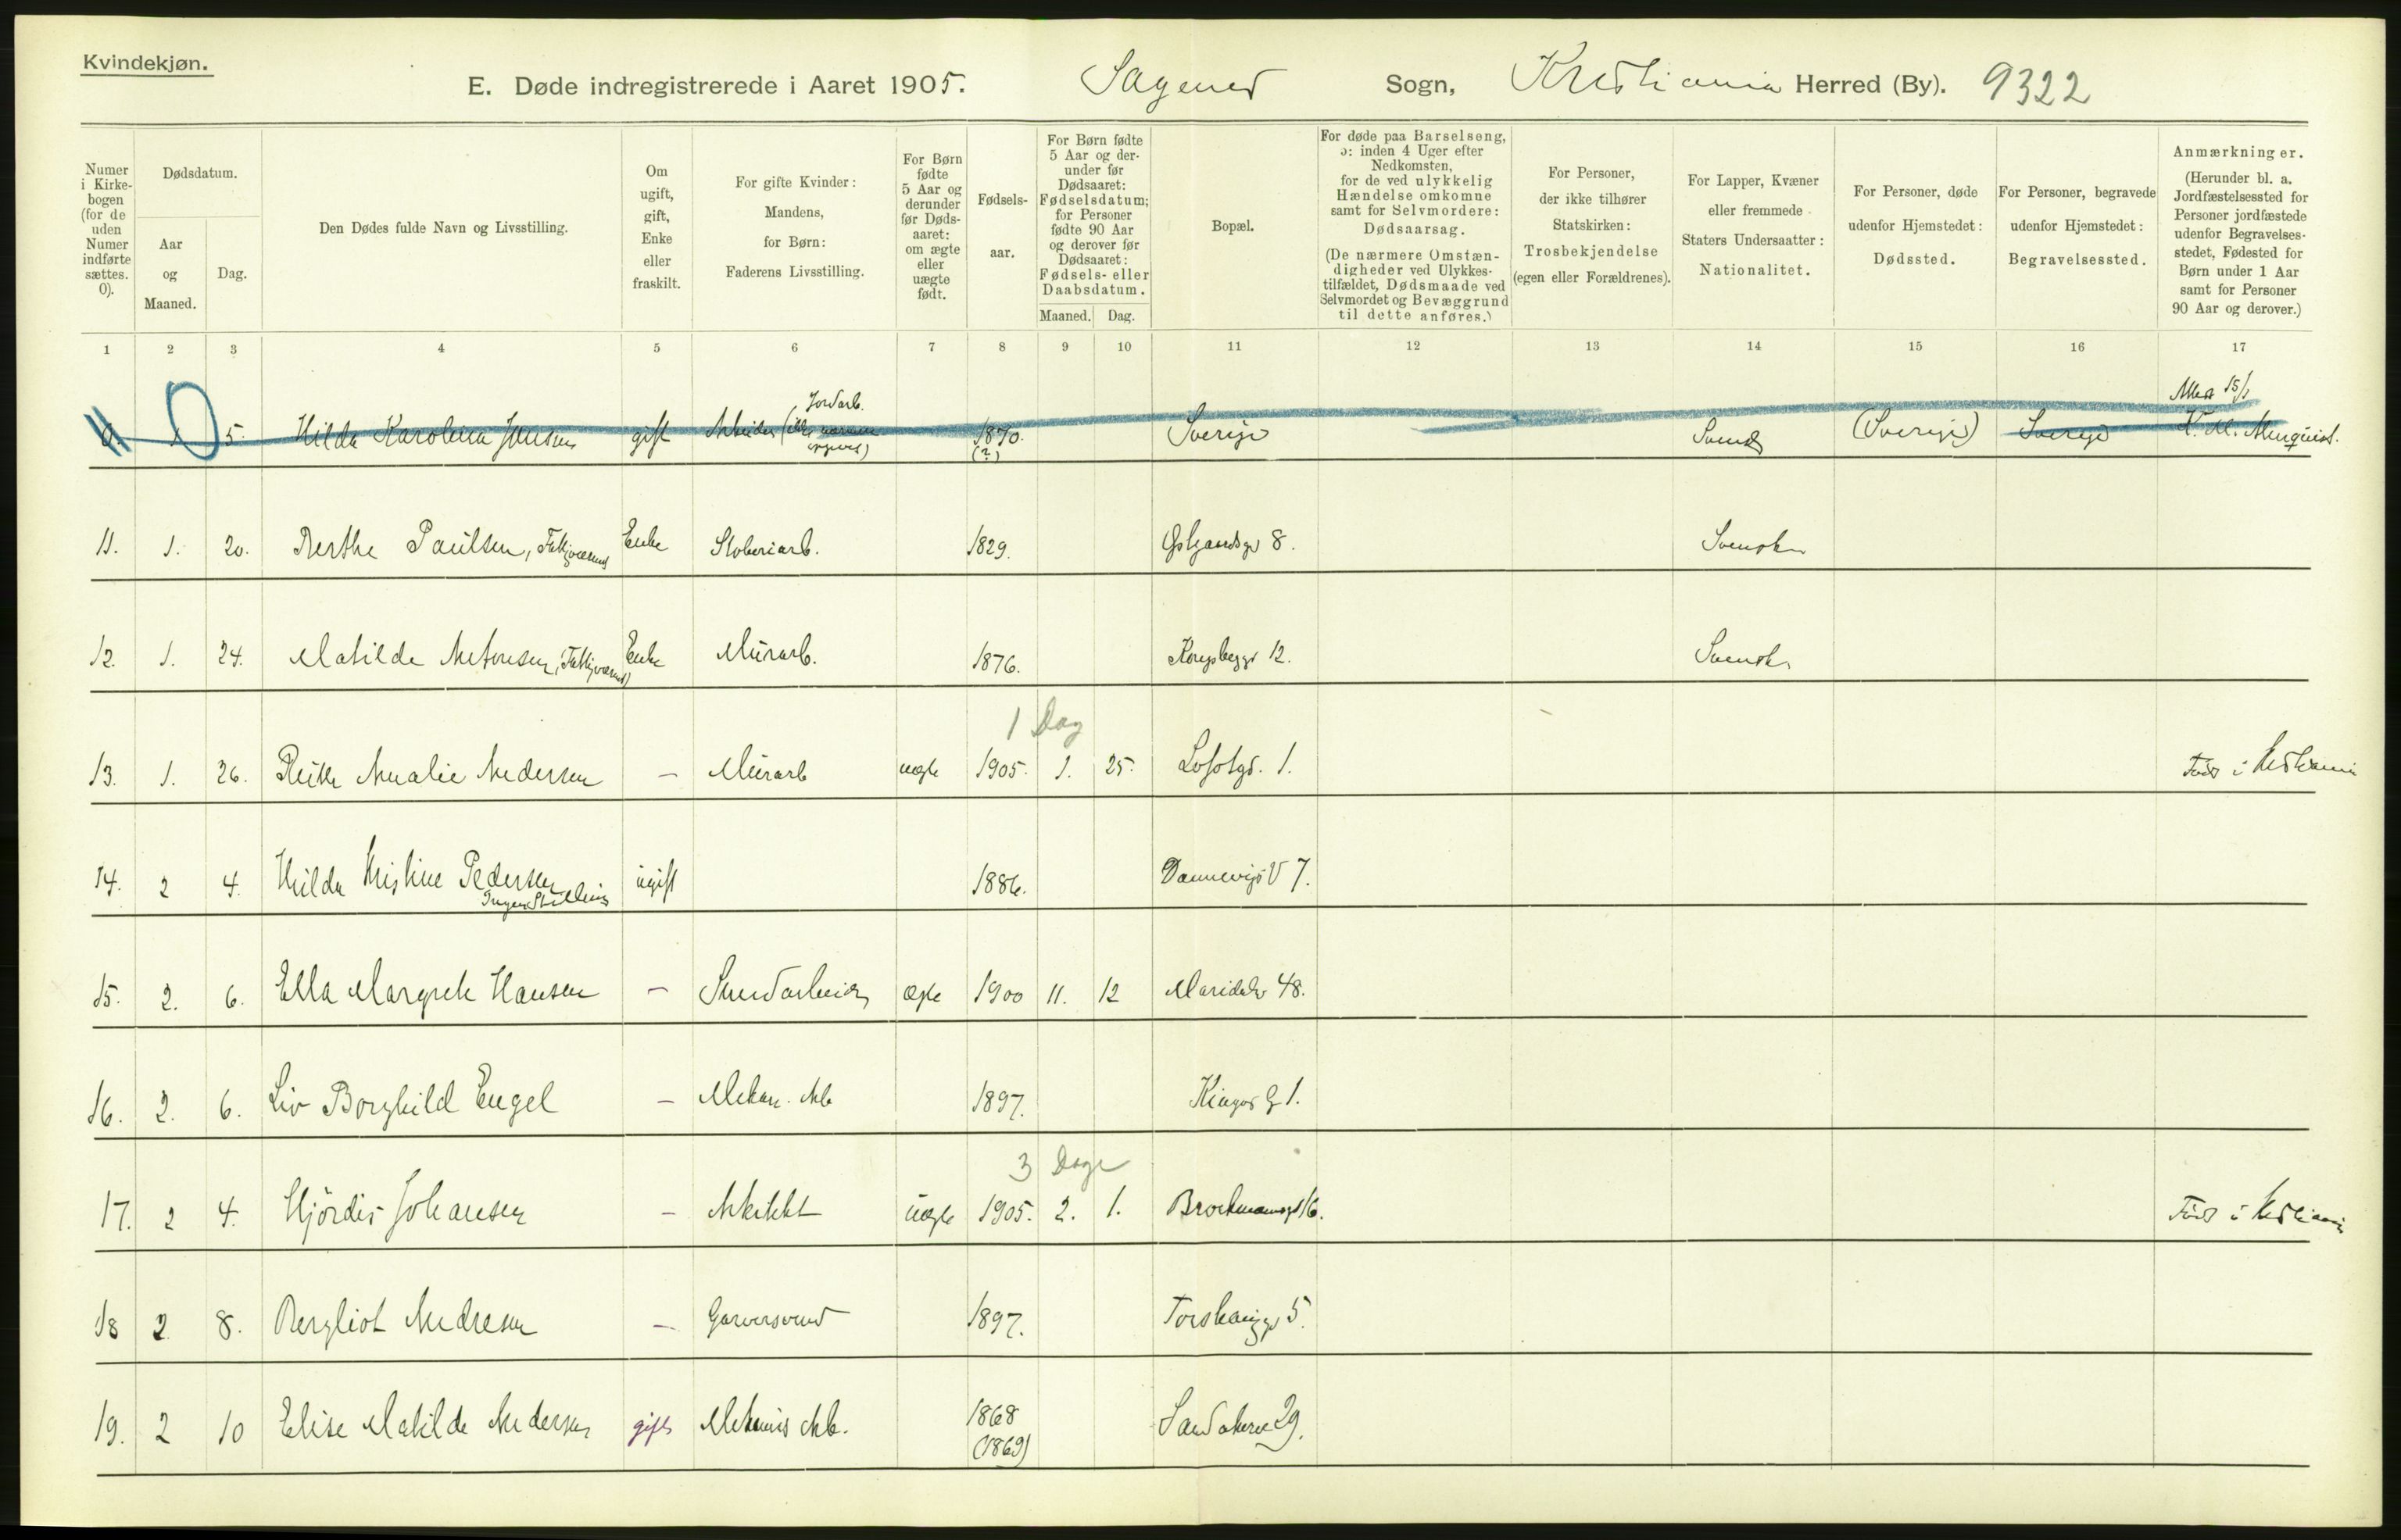 Kvindekjøn.
E. Døde indregistrerede i Aaret 1905. Sagenes Sogn, Kristiania Herred (By). 9322
Numer i Kirke- bogen (for de uden Numer indførte sættes. 0).
Dødsdatum.
Aar og Maaned.
Dag.
Den Dødes fulde Navn og Livsstilling.
Om ugift, gift, Enke eller fraskilt.
For gifte Kvinder: Mandens, for Børn: Faderens Livsstilling.
For Børn fødte 5 Aar og derunder før Døds- aaret: om ægte eller uægte født.
Fødsels- aar.
For Børn fødte 5 Aar og der- under før Dødsaaret: Fødselsdatum; for Personer fødte 90 Aar og derover før Dødsaaret: Fødsels- eller Daabsdatum.
Maaned. Dag.
Bopæl.
For døde paa Barselseng, ɔ: inden 4 Uger efter Nedkomsten, for de ved ulykkelig Hændelse omkomne samt for Selvmordere: Dødsaarsag. (De nærmere Omstæn- digheder ved Ulykkes- tilfældet, Dødsmaade ved Selvmordet og Bevæggrund til dette anføres.)
For Personer, der ikke tilhører Statskirken: Trosbekjendelse (egen eller Forældrenes).
For Lapper, Kvæner eller fremmede Staters Undersaatter: Nationalitet.
For Personer, døde udenfor Hjemstedet: Dødssted.
For Personer, begravede udenfor Hjemstedet: Begravelsessted.
Anmærkninger. (Herunder bl. a. Jordfæstelsessted for Personer jordfæstede udenfor Begravelses- stedet, Fødested for Børn under 1 Aar samt for Personer 90 Aar og derover.)
1 2 3 4 5 6 7 8 9 10 11 12 13 14 15 16 17
Jordarb. 15/1
0. 1 5. Hilda Karolina Jensen gift Arbeider (ikke nærmere opgivet) 1870. (?) Sverige Svensk (Sverige) Sverige Almquist.
11. 1. 20. Berthe Paulsen, Fattiglem Enke Stoberiarb. 1829. 8. Svensk
12. 1. 24. Matilde Antonsen, Enke Murarb. 1876. 12. Svensk
1 Dag
13. 1. 26. Amalie Andersen – Murarb uægte 1905. 1. 25. Lofotgd. 1. Født i Kristiania
14. 2 4. Hilda Kristine Pedersen Ingen Stilling ugift 1886. Dannevigs V 7.
15. 2. 6. Ella Margrete Hansen – ægte 1900 11. 12 Maridalv 48.
16. 2. 6. Liv Borghild Engel – Mekan. Arb 1897. Kingos G 1.
3 Dage
17. 2 4. Hjördis Johansen – Arkitekt uægte 1905. 2. 1. Brockmannsgd 16. Født i Kristiania
18 2 8. Bergliot Andresen – Garversvend 1897. Torshauggd 5.
19. 2 10 Elise Matilde Andersen gift Mekanis Arb. 1868 (1869) Sandakerv 29.